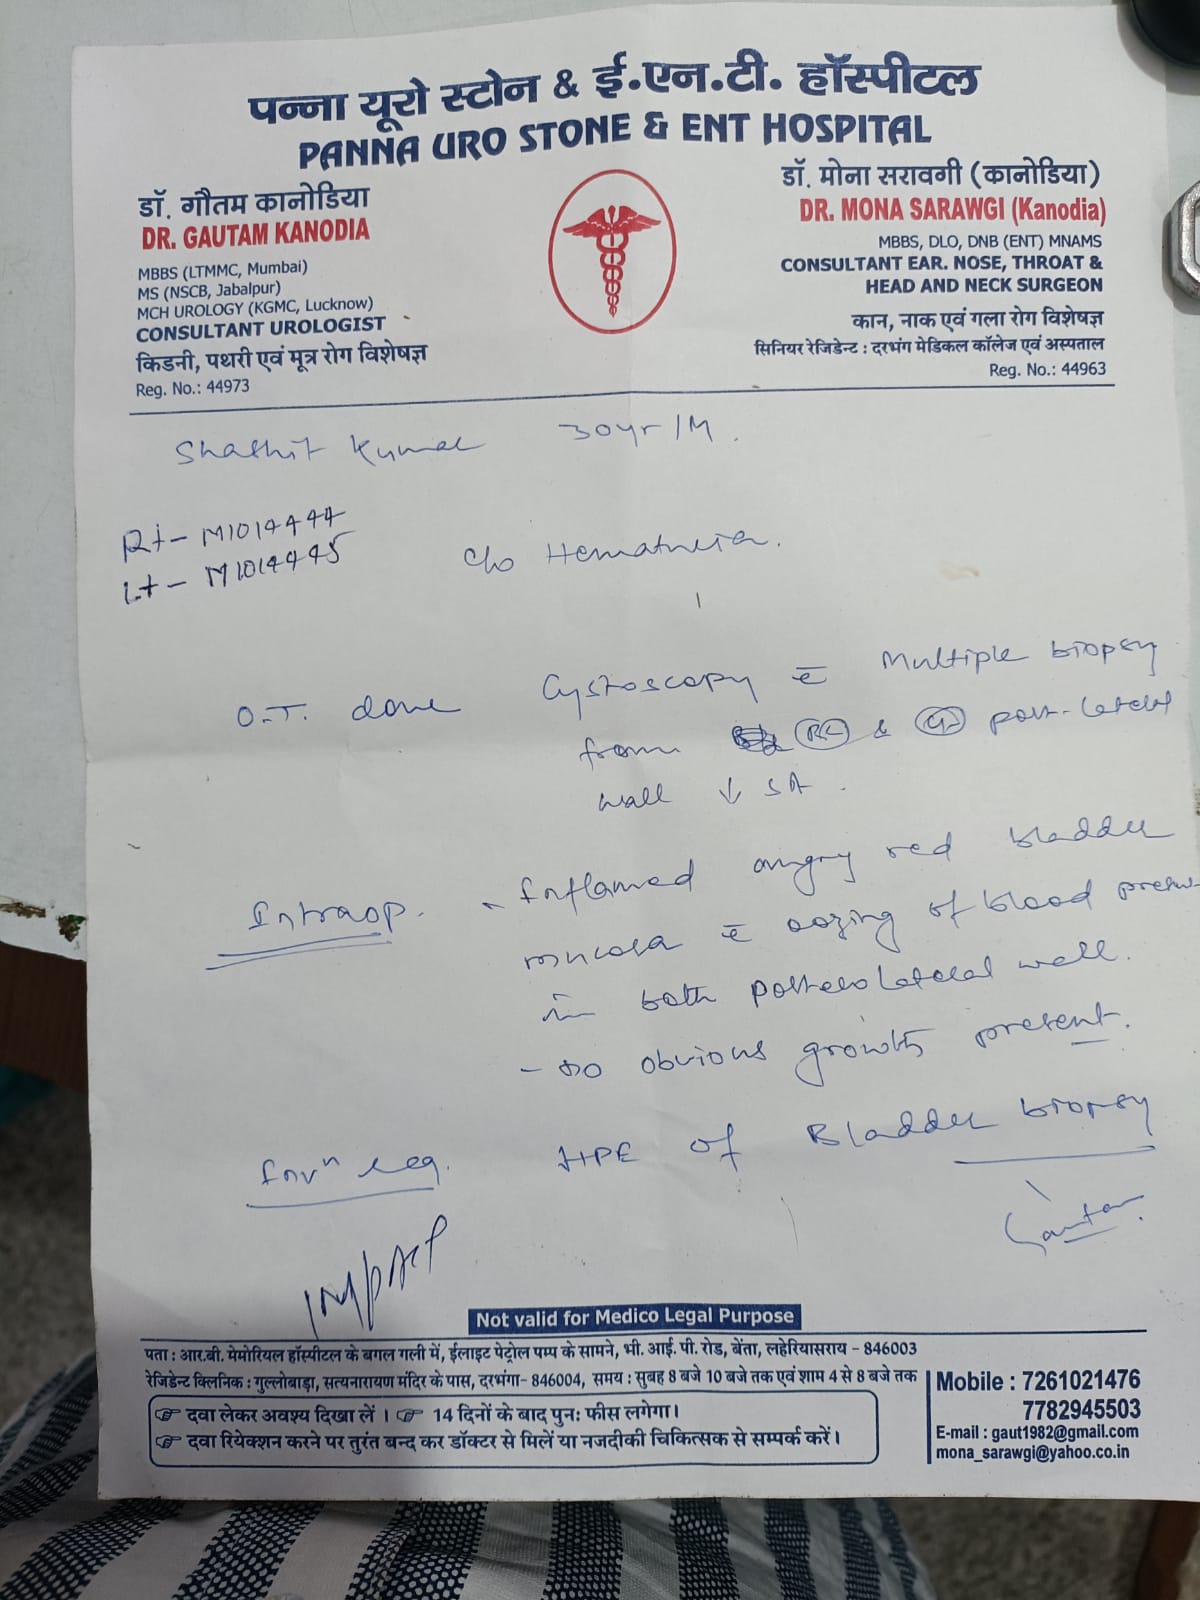 पन्ना यूरो स्टोन & ई.एन.टी. हॉस्पीटल
PANNA URO STONE & ENT HOSPITAL
डॉ. गौतम कानोडिया
DR. GAUTAM KANODIA
MBBS (LTMMC, Mumbai)
MS (NSCB, Jabalpur)
MCH UROLOGY (KGMC, Lucknow)
CONSULTANT UROLOGIST
किडनी, पथरी एवं मूत्र रोग विशेषज्ञ
Reg. No.: 44973
डॉ. मोना सरावगी (कानोडिया)
DR. MONA SARAWGI (Kanodia)
MBBS, DLO, DNB (ENT) MNAMS
CONSULTANT EAR. NOSE, THROAT &
HEAD AND NECK SURGEON
कान, नाक एवं गला रोग विशेषज्ञ
सिनियर रेजिडेन्ट : दरभंग मेडिकल कॉलेज एवं अस्पताल
Reg. No.: 44963
Kumar 30yr/M.
Rt- M1014444
Lt- M1014445
c/o Hematuria.
O.T. done Cystoscopy c̄ Multiple biopsy
from (Rt) & (Lt) post-lateral
wall ↓ SA.
Intraop. - Inflamed angry red bladder
mucosa c̄ oozing of blood present
in both posterolateral wall.
- no obvious growth present.
Invⁿ req. HPE of Bladder biopsy
Gautam
IMPACT
Not valid for Medico Legal Purpose
पता : आर.बी. मेमोरियल हॉस्पीटल के बगल गली में, ईलाइट पेट्रोल पम्प के सामने, भी. आई. पी. रोड, बेंता, लहेरियासराय - 846003
रेजिडेन्ट क्लिनिक : गुल्लोबाड़ा, सत्यनारायण मंदिर के पास, दरभंगा- 846004, समय : सुबह 8 बजे 10 बजे तक एवं शाम 4 से 8 बजे तक
☞ दवा लेकर अवश्य दिखा लें । ☞ 14 दिनों के बाद पुन: फीस लगेगा।
☞ दवा रियेक्शन करने पर तुरंत बन्द कर डॉक्टर से मिलें या नजदीकी चिकित्सक से सम्पर्क करें।
Mobile : 7261021476
7782945503
E-mail : gaut1982@gmail.com
mona_sarawgi@yahoo.co.in